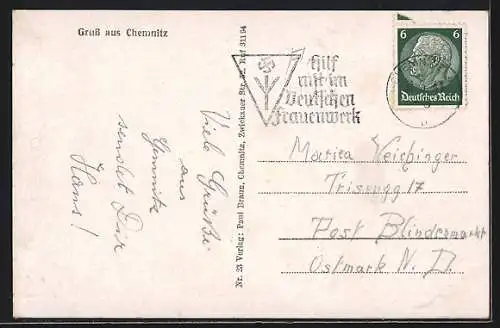 Gruß aus Chemnitz
Viele Grüße
aus
Chemnitz
sendet Dir
Hans!
Nr. 23 Verlag: Paul Braun, Chemnitz, Zwickauer Str. Ruf 31194
Hilf
mit im
Deutschen
Frauenwerk
6 6
Deutsches Reich
Maria Weichinger
Trisenegg 17
Post Blindenmarkt
Ostmark N. D.